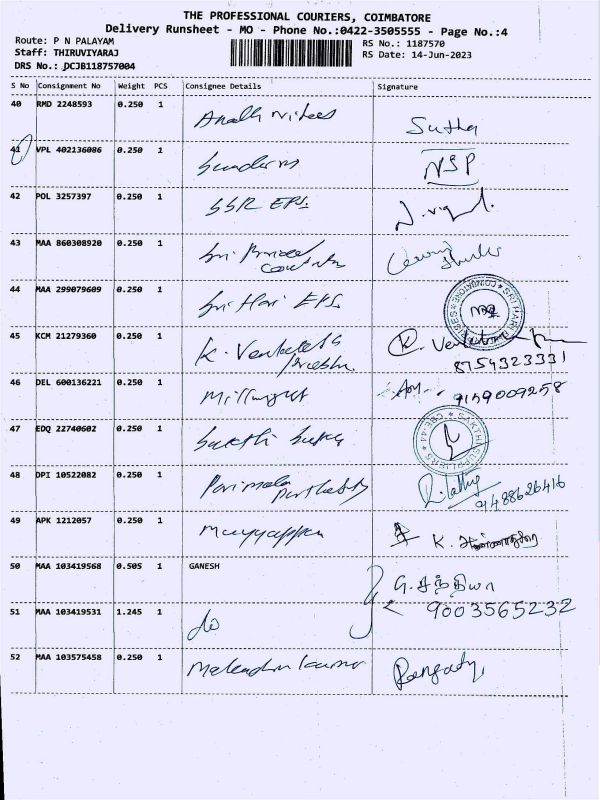 THE PROFESSIONAL COURIERS, COIMBATORE
Delivery Runsheet - MO - Phone No.:0422-3505555 - Page No.:4
Route: P N PALAYAM RS No.: 1187570
Staff: THIRUVIYARAJ RS Date: 14-Jun-2023
DRS No.: DCJB118757004
S No Consignment No Weight PCS Consignee Details Signature
40 RMD 2248593 0.250 1 Sutha
41 VPL 402136086 0.250 1 Sundaram NSP
42 POL 3257397 0.250 1 SSR EPS.
43 MAA 860308920 0.250 1 Sri
44 MAA 299079609 0.250 1 Sri Hari EPS.
45 KCM 21279360 0.250 1 K. Venkatesh Prabhu K.
8754323331
46 DEL 600136221 0.250 1
9159009258
47 EDQ 22740602 0.250 1 Sakthi
48 DPI 10522082 0.250 1 Parimala
9488626416
49 APK 1212057 0.250 1 Meyyappan K.
50 MAA 103419568 0.505 1 GANESH G. சந்தியா
51 MAA 103419531 1.245 1 do 9003565232
52 MAA 103575458 0.250 1 Kumar